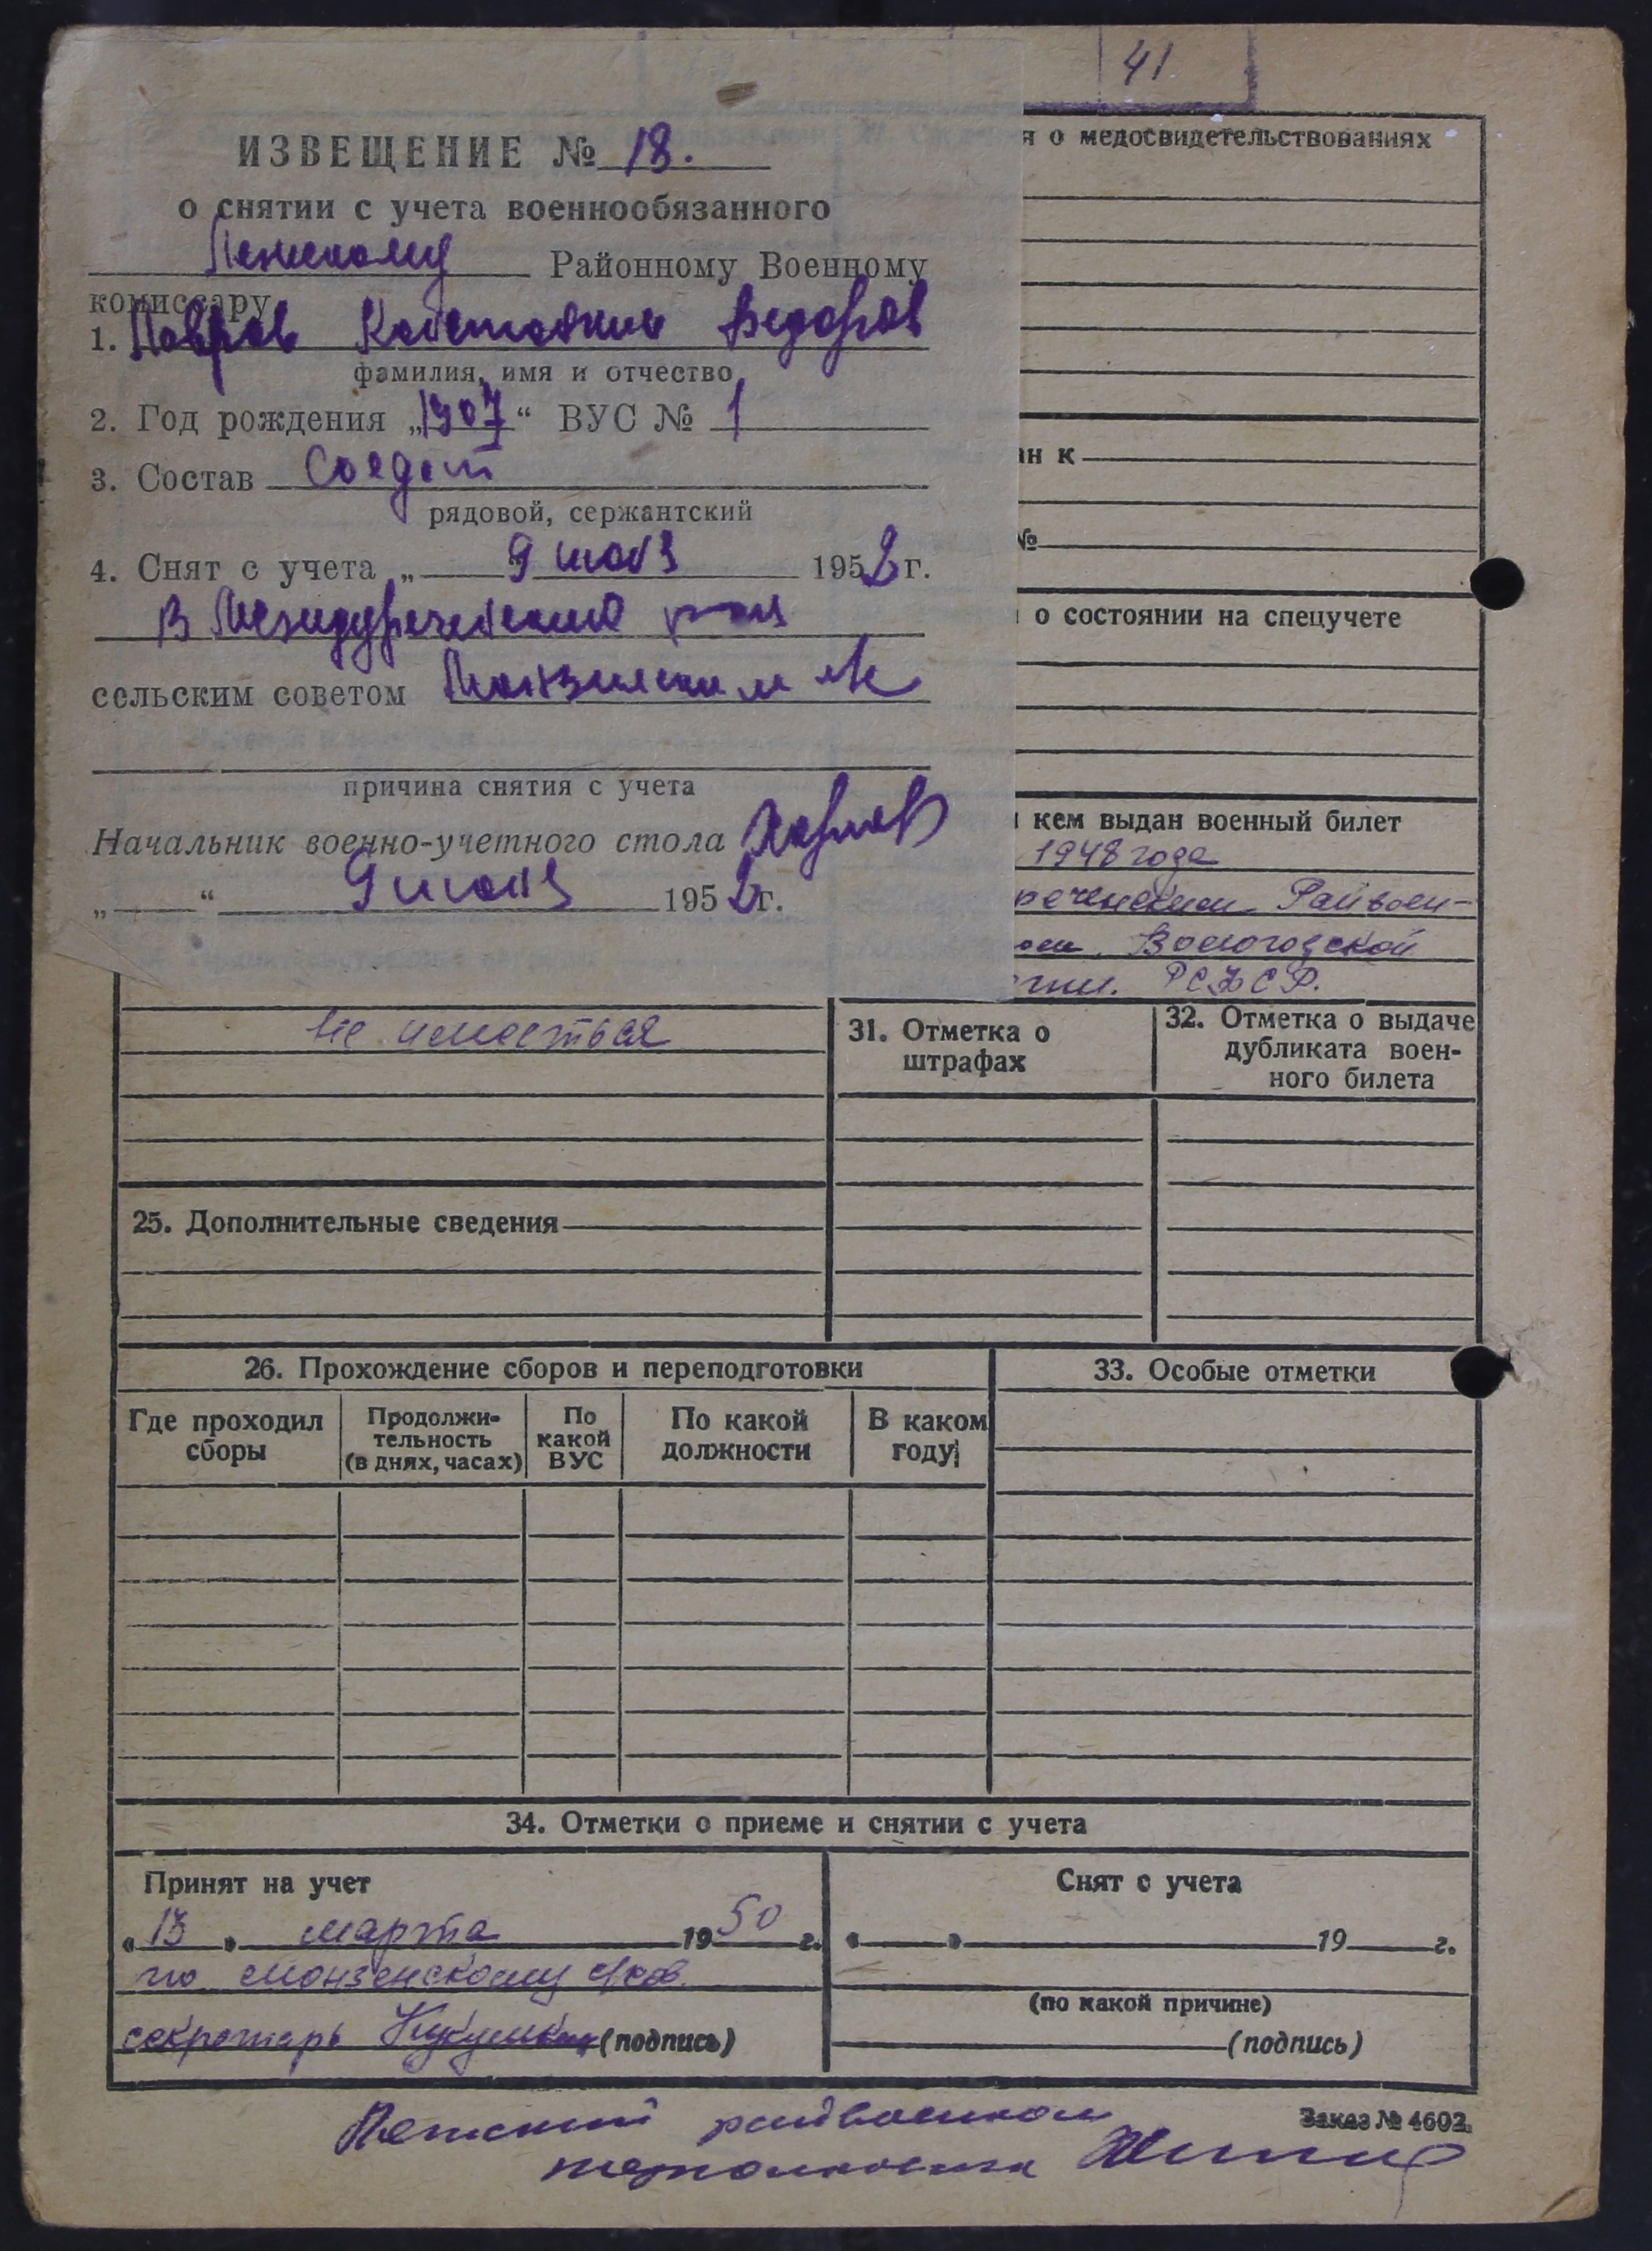 41
ИЗВЕЩЕНИЕ № 18.
о снятии с учета военнообязанного
Районному Военному
комиссару
1.
фамилия, имя и отчество
2. Год рождения „1907“ ВУС № 1
3. Состав Солдат
рядовой, сержантский
4. Снят с учета „ 9 1952 г.
В Междуреченский
сельским советом
причина снятия с учета
Начальник военно-учетного стола
„ “ 9 1952 г.
я о медосвидетельствованиях
ан к
№
о состоянии на спецучете
кем выдан военный билет
1948 года
реченским Райвоен-
ом. Вологодской
РСФСР.
Не имеється
31. Отметка о
штрафах
32. Отметка о выдаче
дубликата воен-
ного билета
25. Дополнительные сведения
26. Прохождение сборов и переподготовки
33. Особые отметки
Где проходил
сборы
Продолжи-
тельность
(в днях, часах)
По
какой
ВУС
По какой
должности
В каком
году
34. Отметки о приеме и снятии с учета
Принят на учет
«13» марта 1950 г.
по Монзенскому с/сов.
секретарь (подпись)
Снят с учета
« » 19 г.
(по какой причине)
(подпись)
Заказ № 4602.
райвоенком